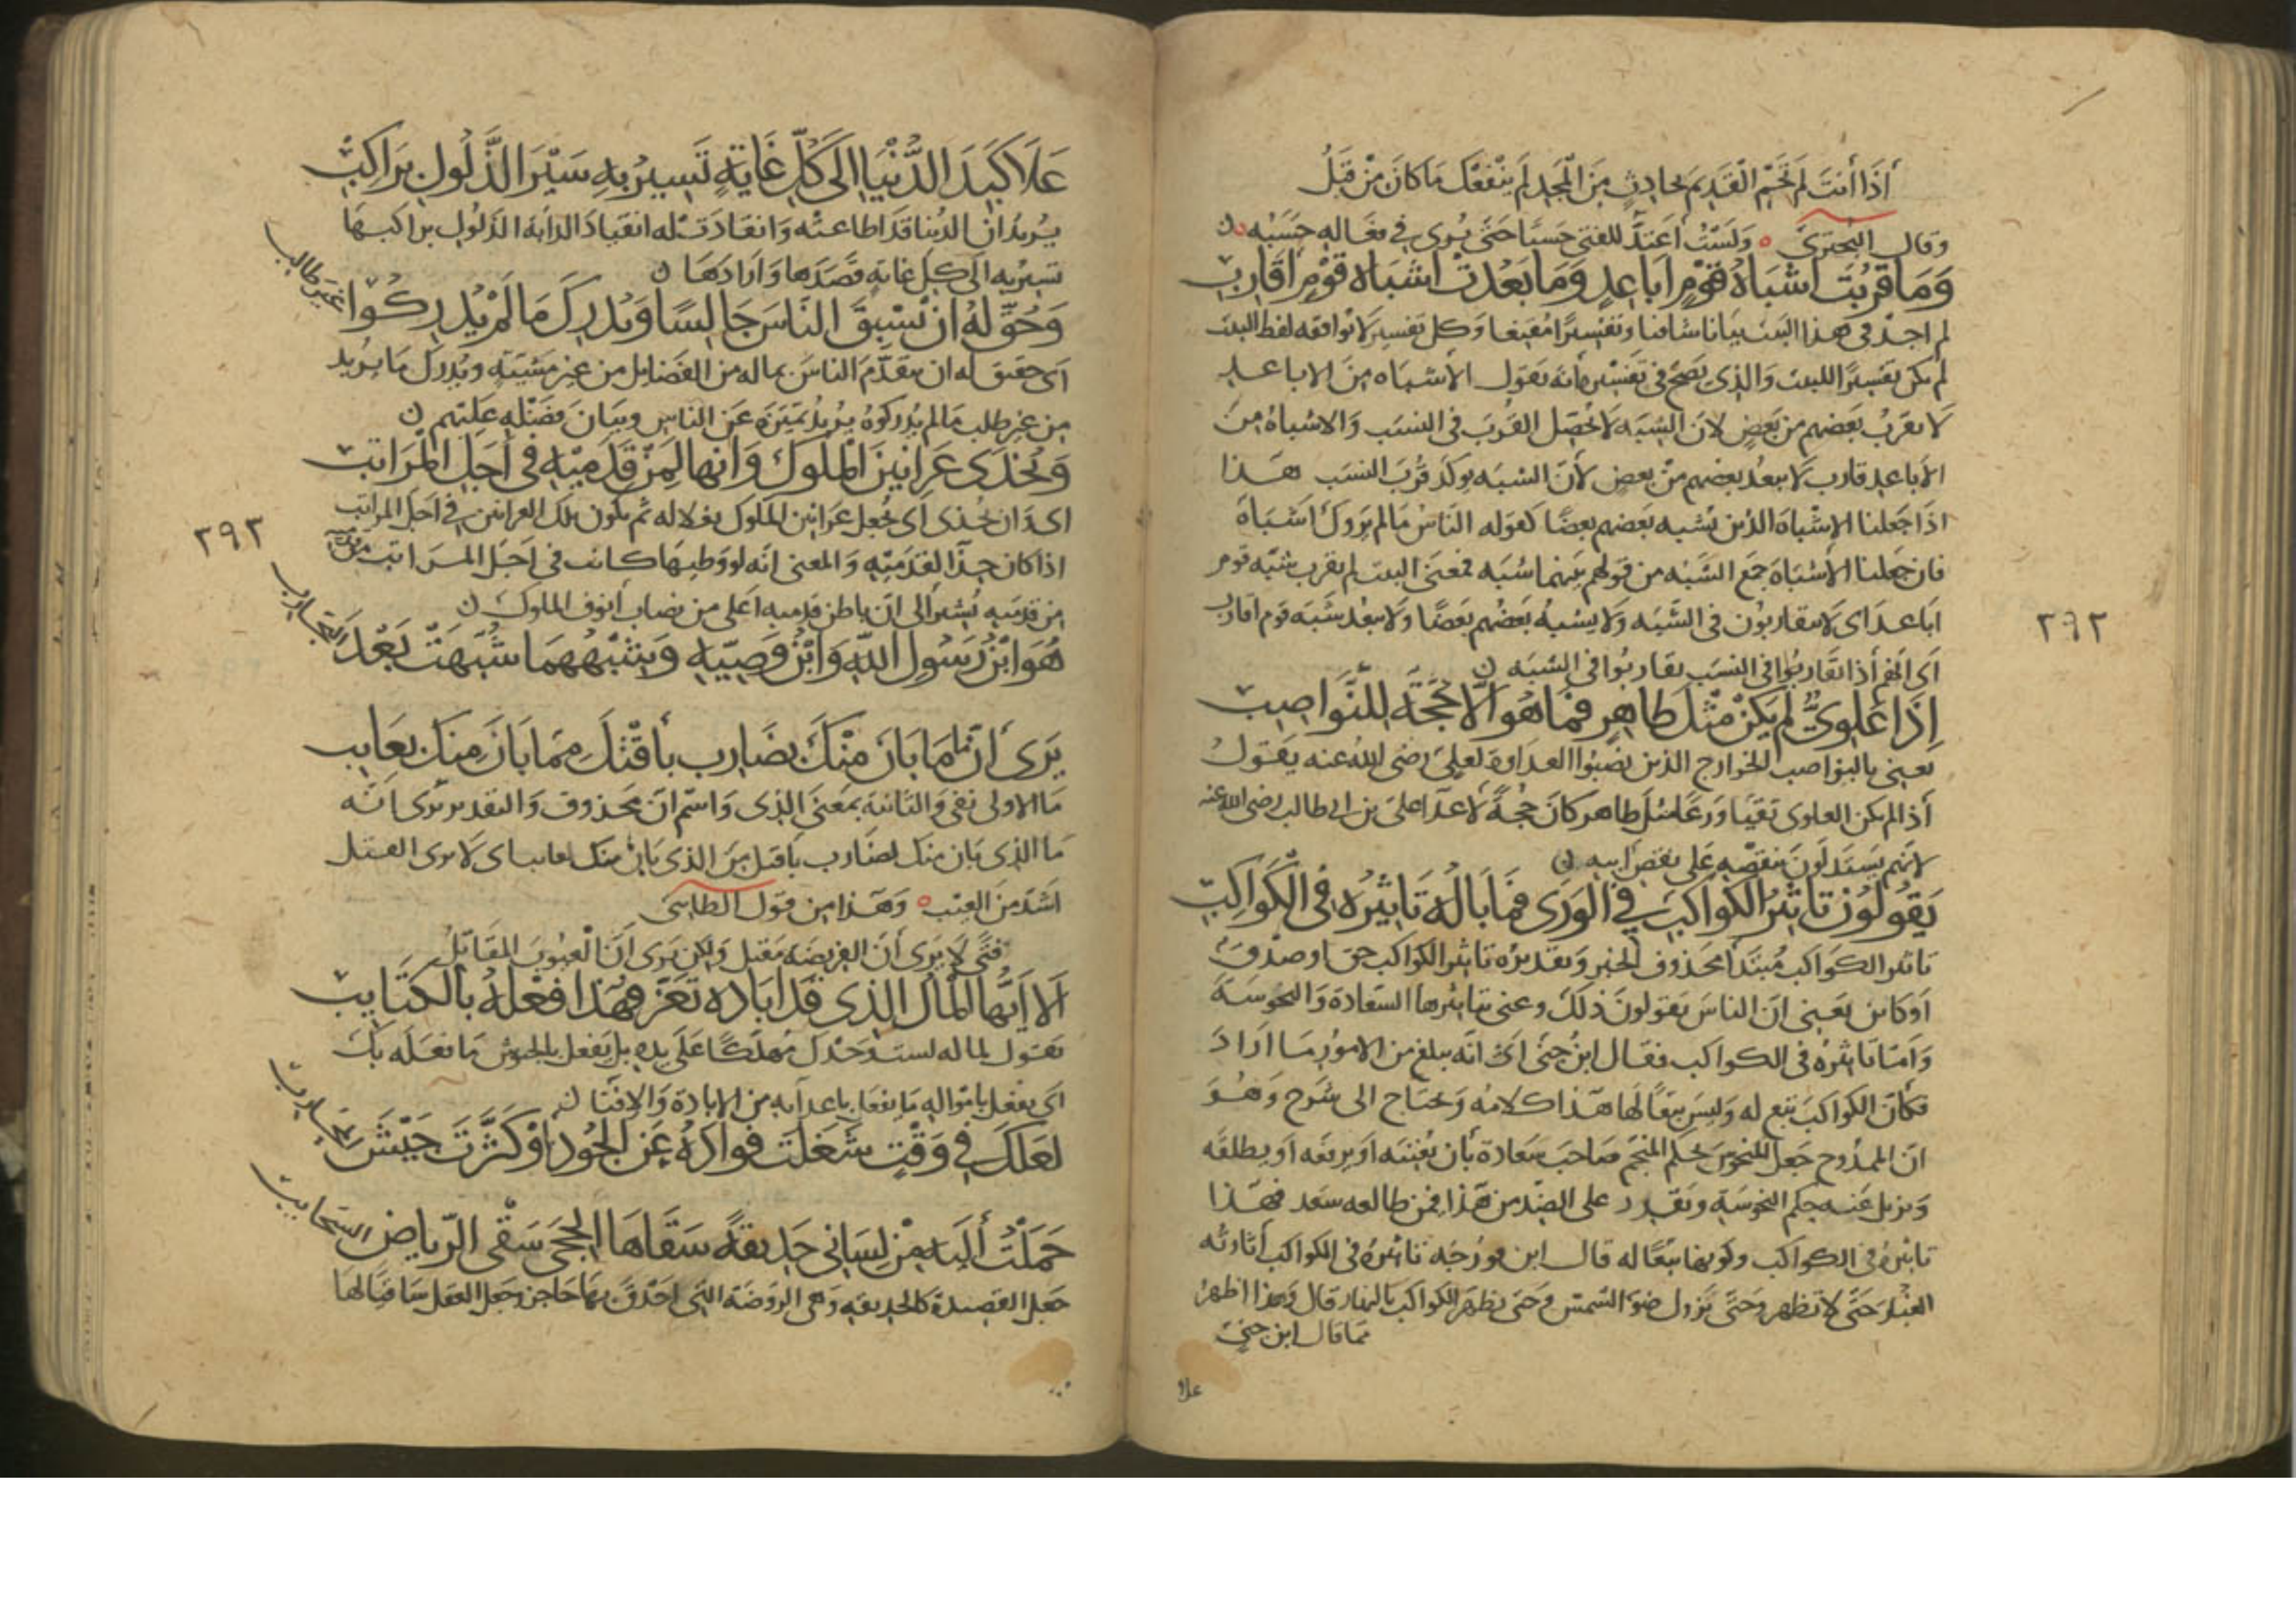 أذا أنت لم تحم القديم بحادث من المجد لم ينفعك ما كان من قبل
وقال البحتري ه ولست أعتد للفتى حسبا حتى يرى في فعاله حسبه ن
وما قربت أشباه قوم أباعد وما بعدت اشباه قوم أقارب
لم اجد في هذا البيت بيانا شافيا وتفسيرا مقنعا وكل تفسير لا يوافقه لفظ البيت
لم يكن تفسيرا للبيت والذي يصح في تفسيره أنه يقول الأشباه من الاباعد
لا يقرب بعضهم من بعض لان الشبه لا يحصل القرب في النسب والاشباه من
الأباعد قارب لا يبعد بعضهم من بعض لأن الشبه يوكد قرب النسب هذا
اذا جعلنا الاشباه الذين يشبه بعضهم بعضا كقوله الناس مالم يروك اشباه
فان جعلنا الأشباه جمع الشبه من قولهم بينهما شبه فمعنى البيت لم يقرب شبه قوم
اباعد اى لا يتقاربون في الشبه ولا يشبه بعضهم بعضا ولا يبعد شبه قوم اقارب
أى انهم أذا تقاربوا في النسب تقاربوا في الشبه ن
إذا علوي لم يكن مثل طاهر فما هو الا حجة للنواصب
يعني بالنواصب الخوارج الذين نصبوا العداوة لعلي رضى الله عنه يقول
أذا لم يكن العلوى تقيا ورعا مثل طاهر كان حجة لاعدا على بن ابى طالب رضى الله عنه
لانهم يستدلون بنقصه على نقص ابيه ن
يقولون تاثير الكواكب في الورى فما باله تاثيره في الكواكب
تاثير الكواكب مبتدأ محذوف الخبر وتقديره تاثير الكواكب حق او صدق
او كاين يعنى ان الناس يقولون ذلك وعنى بتاثيرها السعادة والنحوسة
وامتا تاثيره في الكواكب فقال ابن جنى اى انه يبلغ من الامور ما اراد
فكأن الكواكب تبع له وليس تبعا لها هذا كلامه ويحتاج الى شرح وهو
ان الممدوح جعل المنحوس بحكم المنجم صاحب سعادة بأن يغنيه او يرفعه او يطلقه
ويزيل عنه حكم النحوسة ويقدر على الضد من هذا فيمن طالعه سعد فهذا
تاثيره في الكواكب وكونها تبعا له قال ابن فورجه تاثيره في الكواكب أثارته
الغبار حتى لا تظهر وحتى يزول ضوء الشمس وحتى يظهر الكواكب بالنهار قال وهذا اظهر
مما قال ابن جنى
علا
٢٩٢
علا كبد الدنيا الى كل غاية تسير به سير الذلول براكب
يريد ان الدنيا قد اطاعته وانقادت له انقياد الدابة الذلول براكبها
تسير به الى كل غاية قصدها وارادها ن
وحق له ان نسبق الناس جالسا ويدرك ما لم يدركوا غير طالب
اى حقيق له ان يتقدم الناس بماله من الفضايل من غير مشيته ويدرك ما يريد
من غير طلب مالم يدركوه يريد تميزه عن الناس وبيان فضله عليهم ن
ويحذى عرانين الملوك وانها لمن قدميه في أجل المراتب
اى وان يحذى اى يجعل عرانين الملوك نعلا له ثم يكون تلك العرانين في اجل المراتب
اذا كان حذا لقدميه والمعنى انه لو وطيها كانت في اجل المراتب
من قدميه يشير الى ان باطن قدميه اعلى من نصاب أنوف الملوك ن
هو ابن رسول الله وابن وصيه وشبههما شبهت بعد التجارب
يرى أن ما ما بان منك بضارب بأقتل مما بان منك بعايب
ما الاولى نفى والثانية بمعنى الذى واسم ان محذوف والتقدير يرى انه
ما الذى بان منك لضارب باقتل من الذى بان منك لعايب اى لا يرى القتل
اشد من العيب ه وهذا من قول الطايى
فتى لا يرى أن الفريضة مقتل ولكن يرى ان العيوب المقاتل
ألا ايها المال الذي قد اباده تعز فهذا فعله بالكتايب
يقول لماله لست وحدك مهلكا على يده بل يفعل بالجيوش ما فعله بك
اى يفعل بامواله ما يفعل باعدايه من الابادة والافنا ن
لعلك في وقت شغلت فواده عن الجود أو كثرت جيش محارب
حملت أليه من لساني حديقة سقاها الحجى سقى الرياض السحايب
جعل القصيدة كالحديقه وهي الروضة التي احدق بها حاجز وجعل العقل ساقيا لها
٢٩٣